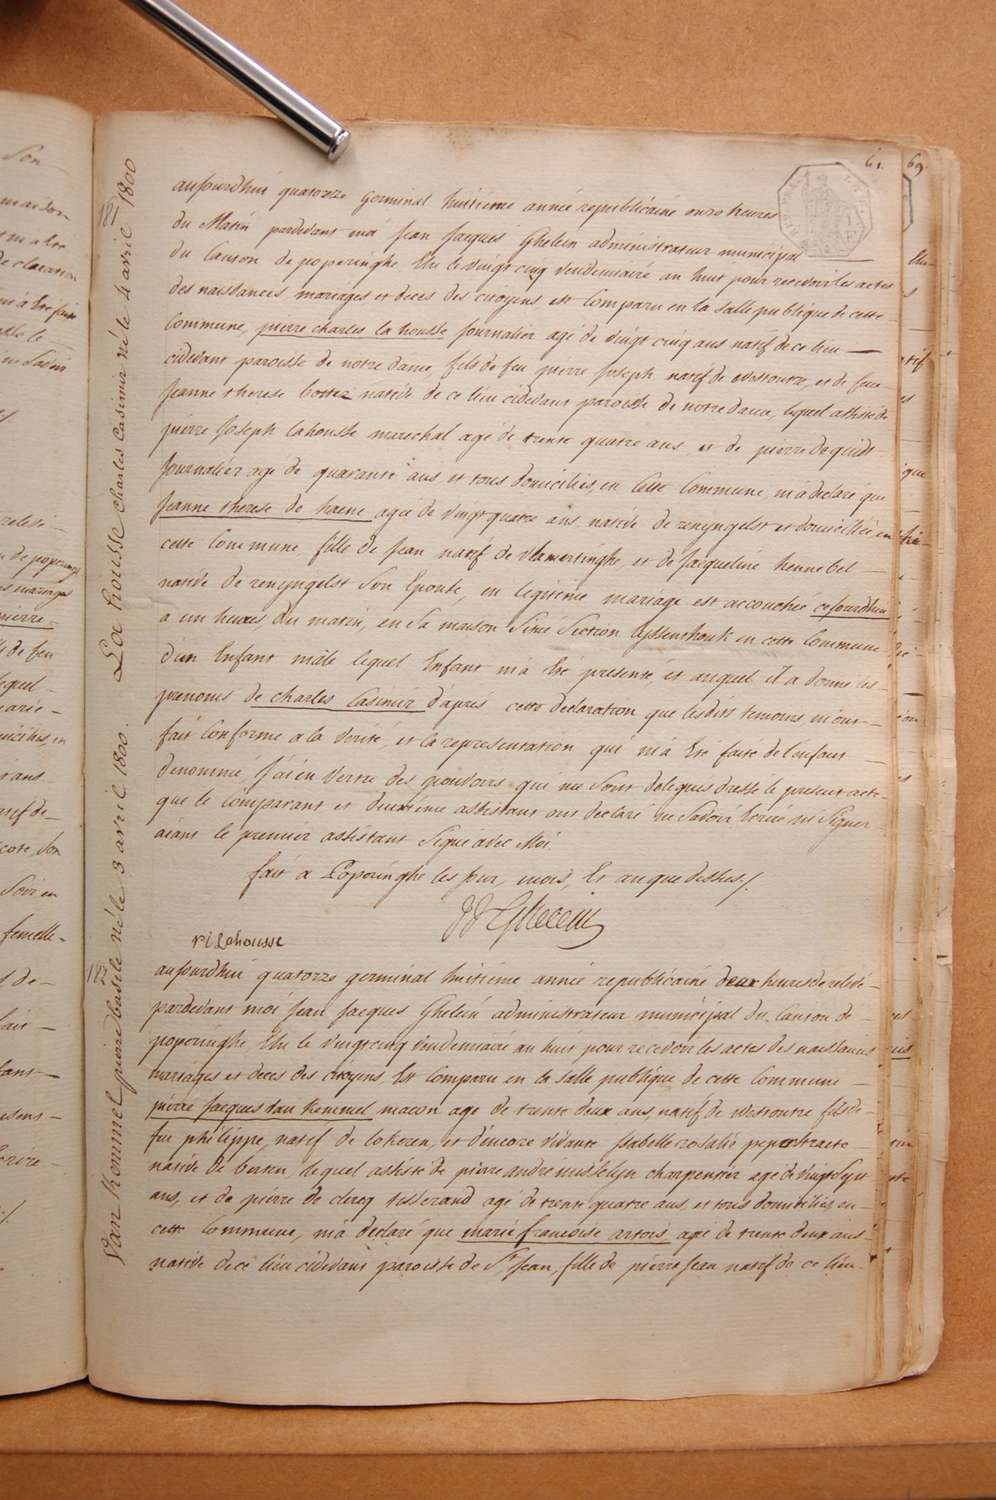 61. 69.
181
La housse charles Casimir né le 4 avril 1800
aujourdhui quatorze Germinal huitieme année republicaine onze heures
du Matin pardevant moi Jean Jacques Ghelein administrateur municipal
du Canton de poperinghe Elu le vingt cinq vendemiaire an huit pour recevoir les actes
des naissances mariages et deces des citoyens, est Comparu en la salle publique de cette
Commune, pierre charles la housse Journalier agé de vingt cinq ans natif de ce lieu
cidevant paroisse de notre dame, fils de feu pierre Joseph natif de Westoutre, et de feue
Jeanne therese Cottez native de ce lieu cidevant paroisse de notre dame, lequel assisté de
pierre Joseph Lahousse marechal agé de trente quatre ans, et de pierre de quidt
Journalier agé de quarante ans, et tous domiciliés, en Cette Commune, m'a declaré que
Jeanne therese de haene agée de vingt quatre ans native de renyngelst et domiciliée, en
cette Commune fille de Jean natif de vlamertinghe, et de Jacqueline hennebel
native de renyngelst son Epouse, en legitime mariage est accouchée cejourdhui
a un heures, du matin, en sa maison Sise Section en cette Commune
d'un Enfant mâle lequel Enfant m'a Eté presenté, et auquel il a donné les
prenoms de charles Casimir d'apres cette declaration que lesdits temoins m'ont
fait Conforme a la verité, et la representation qui m'a Eté faite de l'enfant
denommé, J'ai en vertu des pouvoirs qui me sont delegués dressé le present acte
que le Comparant et deuxieme assistant ont declaré ne Savoir Ecrire ni Signer
aiant le premier assistant Signé avec Moi.
fait a Poperinghe les Jour, mois, Et an que dessus /.
JJ Ghelein
Lahousse
182
Van Kemmel pierre basile né le 3 avril 1800
aujourdhui quatorze germinal huitieme année republicaine deux heures de relevé
pardevant moi Jean Jacques Ghelein administrateur municipal du Canton de
poperinghe, Elu le vingt cinq vendemiaire an huit pour recevoir les actes des naissances
mariages et deces des citoyens, Est Comparu en la salle publique de cette Commune
pierre Jacques van Kemmel macon agé de trente deux ans, natif de Westoutre fils de
feu philippe, natif de lokeren, et d'encore vivante Isabelle rosalie
native de berten, lequel assisté de pierre andré charpentier agé de vingt sept
ans, et de pierre de clercq tisserand agé de trente quatre ans, et tous domiciliés en
cette Commune, m'a declaré que marie francoise artois, agé de trente deux ans
native de ce lieu cidevant paroisse de St Jean, fille de pierre Jean natif de ce lieu